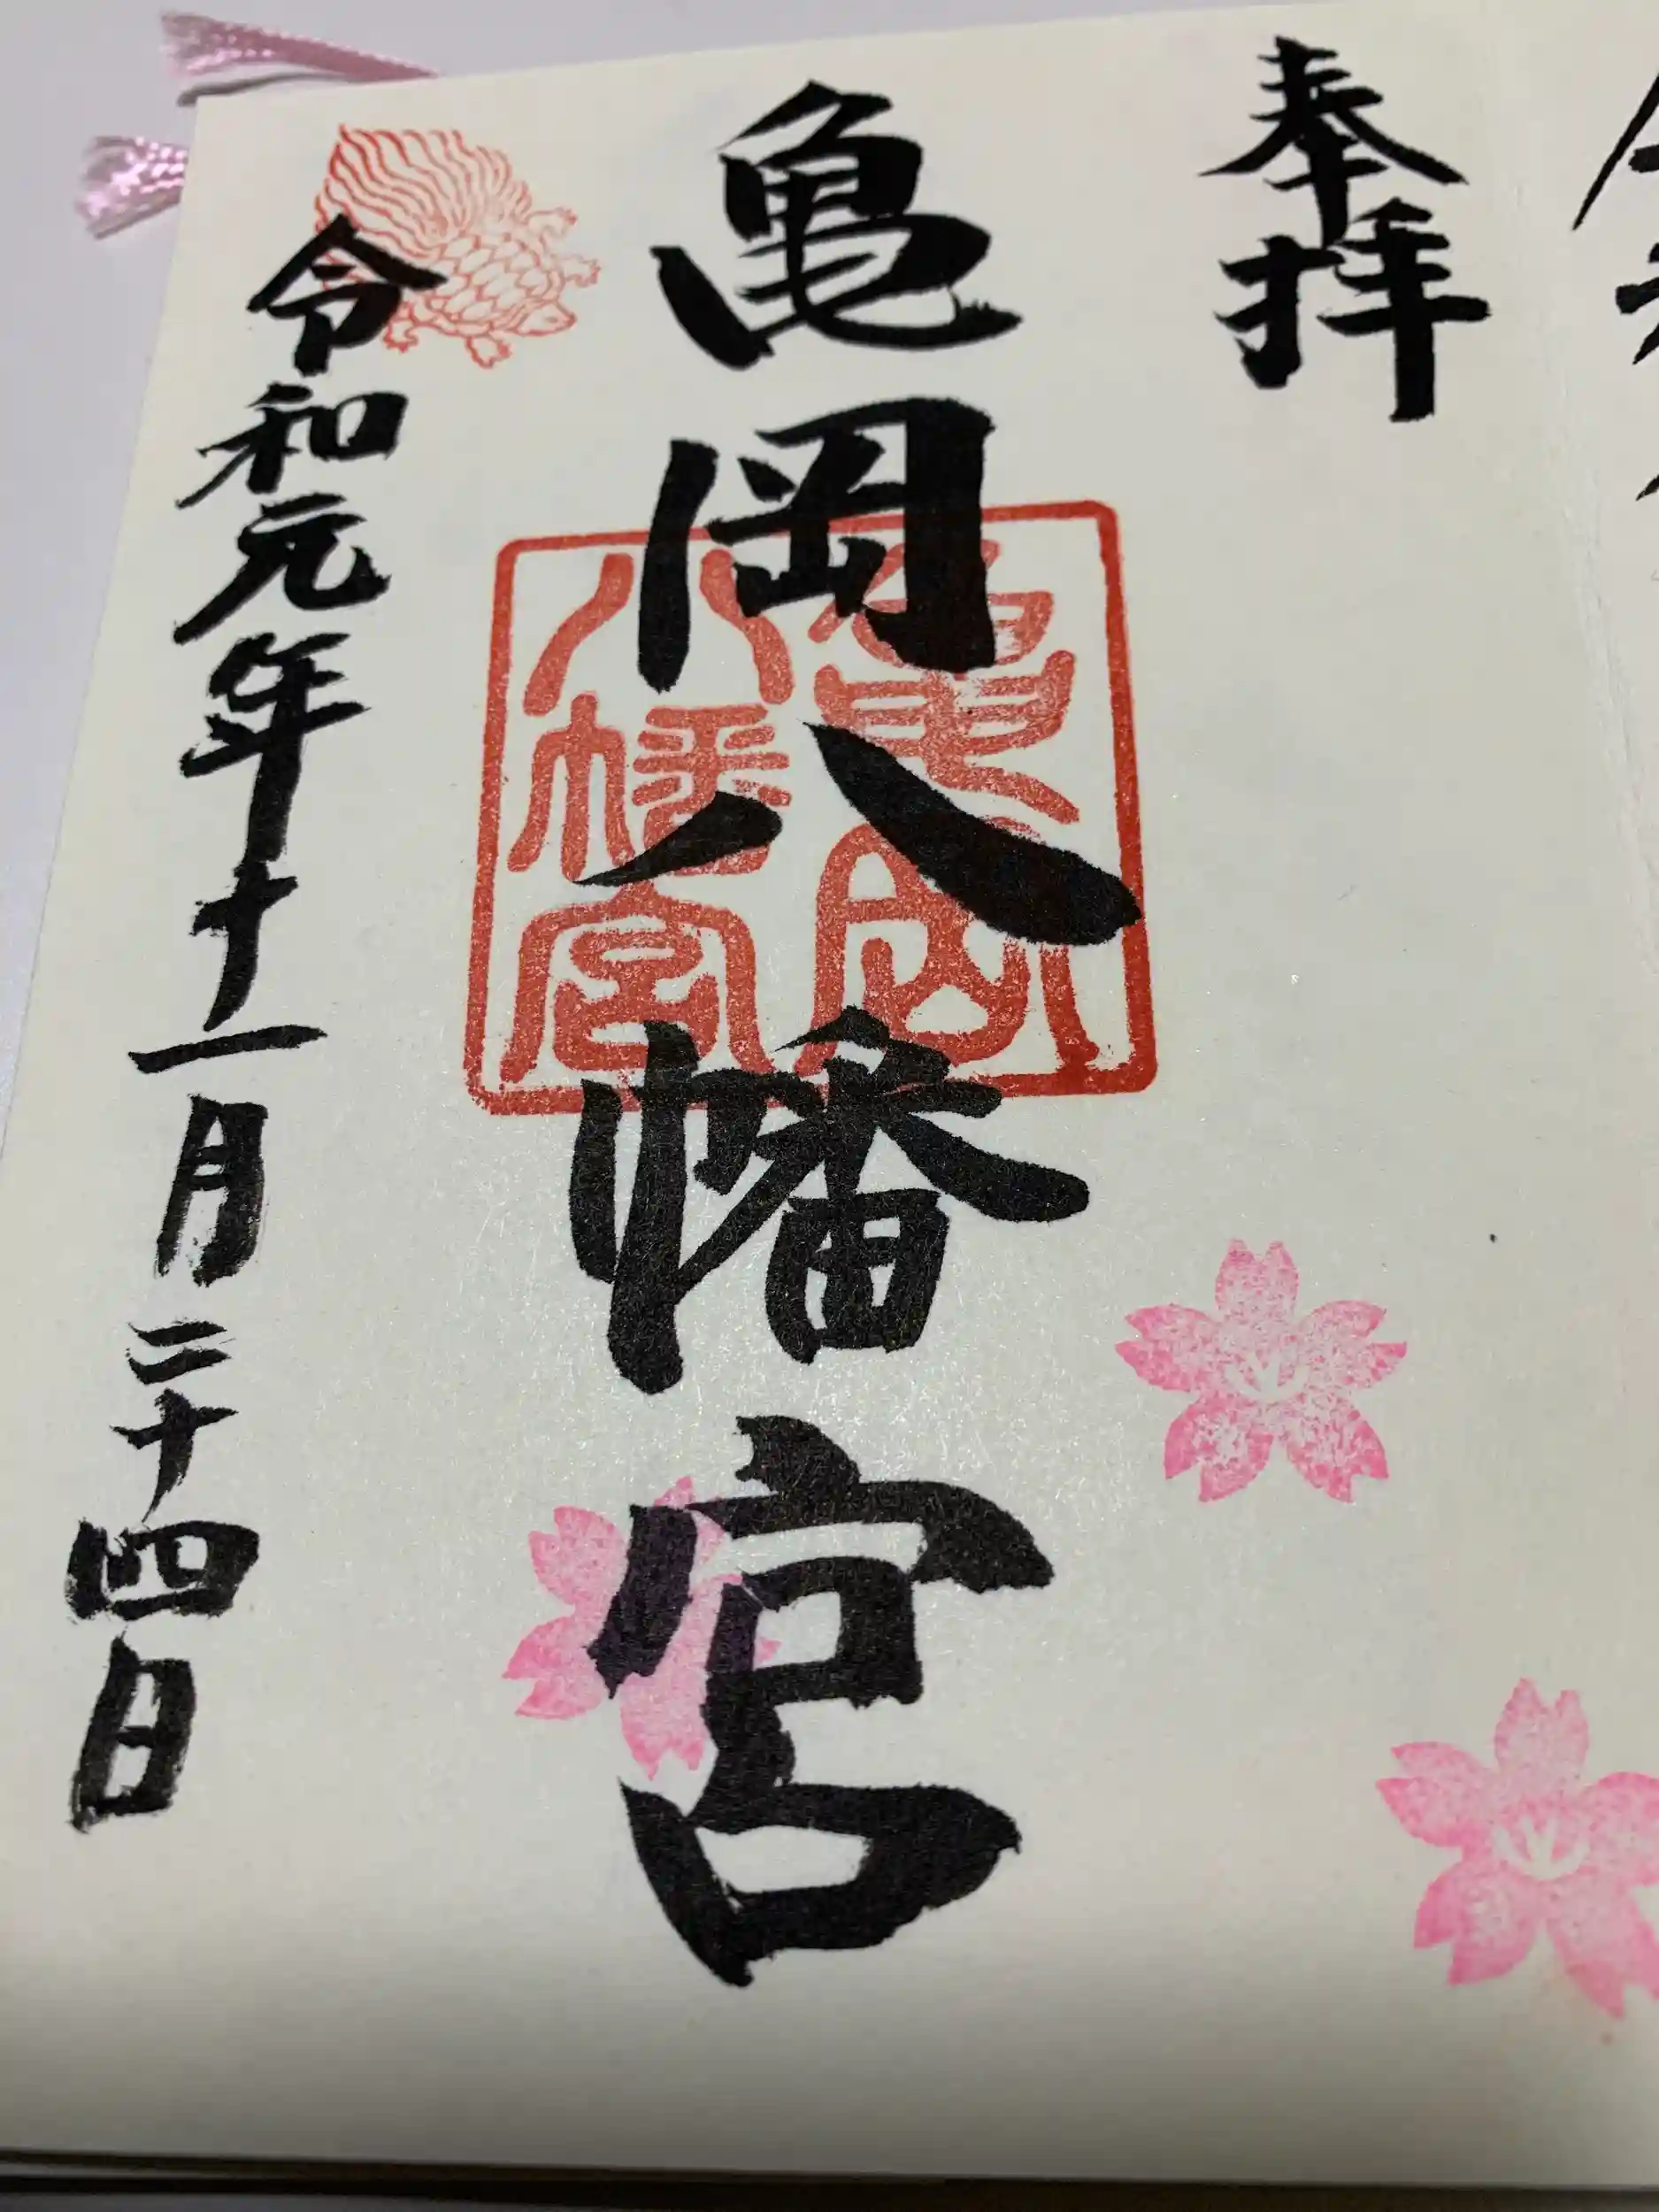 奉拝
亀岡八幡宮
亀岡
八幡宮
令和元年十一月二十四日